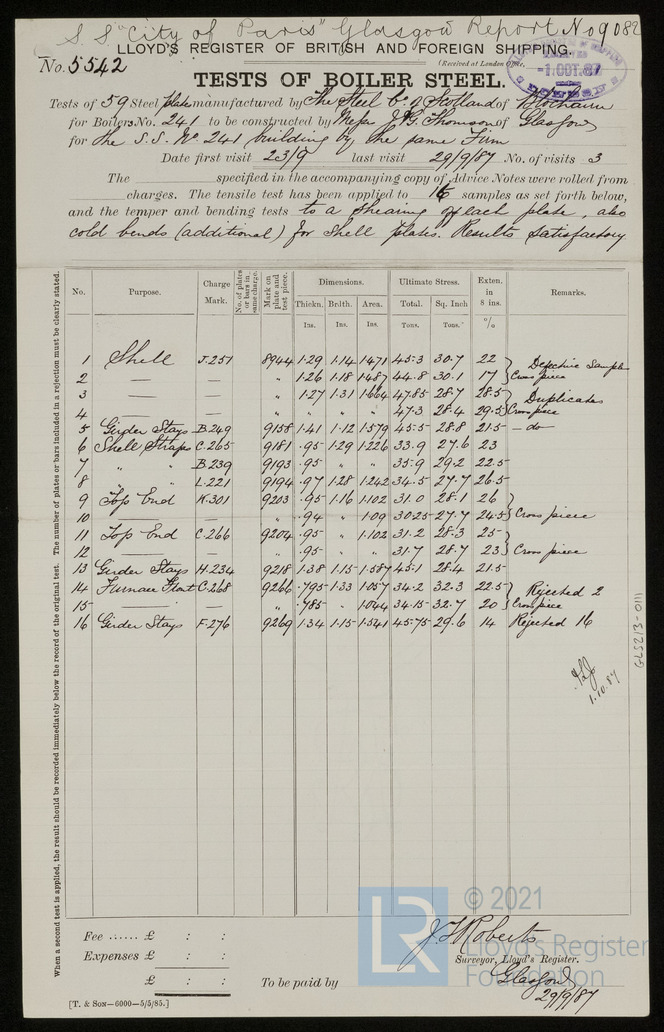 S.S. "City of Paris" Glasgow Report No 9082
LLOYD'S REGISTER OF BRITISH AND FOREIGN SHIPPING.
No. 5542
(Received at London Office,
-1 OCT. 87
TESTS OF BOILER STEEL.
Tests of 59 Steel plates manufactured by The Steel Co. of Scotland of Blochairn
for Boilers No. 241 to be constructed by Messrs J. & G. Thomson of Glasgow
for the S.S. No 241 building by the same Firm
Date first visit 23/9 last visit 29/9/87 No. of visits 3
The specified in the accompanying copy of Advice Notes were rolled from
charges. The tensile test has been applied to 16 samples as set forth below,
and the temper and bending tests to a shearing of each plate, also
cold bends (additional) for shell plates. Results satisfactory
No. Purpose. Charge Mark. No. of plates or bars in same charge. Mark on plate and test piece. Dimensions. Ultimate Stress. Exten. in 8 ins. Remarks.
Thickn. Brdth. Area. Total. Sq. Inch
Ins. Ins. Ins. Tons. Tons. %
1 Shell J.251 8944 1.29 1.14 1.471 45.3 30.7 22 } Defective Sample
2 — — " 1.26 1.18 1.487 44.8 30.1 17 } Cross piece
3 — — " 1.27 1.31 1.664 47.85 28.7 28.5 } Duplicates
4 — — " " " " 47.3 28.4 29.5 } Cross piece
5 Girder Stays B.249 9158 1.41 1.12 1.579 45.5 28.8 21.5 — do —
6 Shell Straps C.265 9181 .95 1.29 1.226 33.9 27.6 23
7 " " B.239 9193 .95 " " 35.9 29.2 22.5
8 " " L.221 9194 .97 1.28 1.242 34.5 27.7 26.5
9 Top End K.301 9203 .95 1.16 1.102 31.0 28.1 26 }
10 — — " .94 " 1.09 30.25 27.7 24.5 } Cross piece
11 Top End C.266 9204 .95 " 1.102 31.2 28.3 25 }
12 — — " .95 " " 31.7 28.7 23 } Cross piece
13 Girder Stays H.234 9218 1.38 1.15 1.587 45.1 28.4 21.5
14 Furnace Front C.268 9266 .795 1.33 1.057 34.2 32.3 22.5 } Rejected 2
15 — — " .785 " 1.044 34.15 32.7 20 } Cross piece
16 Girder Stays F.276 9269 1.34 1.15 1.541 45.75 29.6 14 Rejected 16
1.10.87
GLS213-0111
When a second test is applied, the result should be recorded immediately below the record of the original test. The number of plates or bars included in a rejection must be clearly stated.
Fee ...... £ : :
Expenses £ : :
£ : :
To be paid by
J. F. Roberts
Surveyor, Lloyd's Register.
Glasgow
29/9/87
[T. & SON—6000—5/5/85.]
LR
© 2021
Lloyd's Register
Foundation